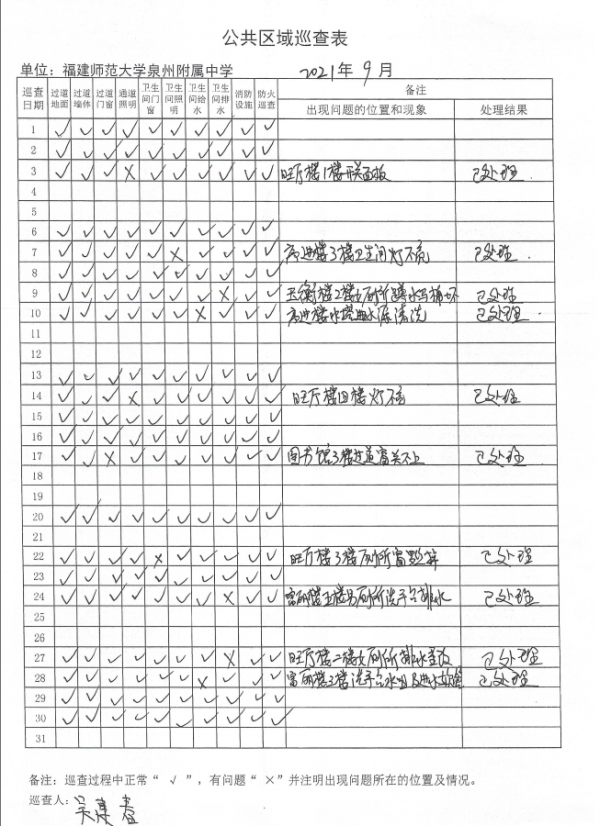 公共区域巡查表
单位：福建师范大学泉州附属中学 2021年 9月
巡查日期 过道地面 过道墙体 过道门窗 通道照明 卫生间门窗 卫生间照明 卫生间给水 卫生间排水 消防设施 防火巡查 备注
出现问题的位置和现象 处理结果
1 √ √ √ √ √ √ √ √ √ √
2 √ √ √ √ √ √ √ √ √ √
3 √ √ √ × √ √ √ √ √ √ 旺厅楼1楼开关面板 已处理
4
5
6 √ √ √ √ √ √ √ √ √ √
7 √ √ √ √ √ × √ √ √ √ 进楼3楼卫生间灯不亮 已处理
8 √ √ √ √ √ √ √ √ √ √
9 √ √ √ √ √ √ √ × √ √ 楼2楼女厕所 已处理
10 √ √ √ √ √ √ × √ √ √ 进楼水塔 清洗 已处理
11
12
13 √ √ √ √ √ √ √ √ √ √
14 √ √ √ × √ √ √ √ √ √ 旺厅楼四楼灯不亮 已处理
15 √ √ √ √ √ √ √ √ √ √
16 √ √ √ √ √ √ √ √ √ √
17 √ √ × √ √ √ √ √ √ √ 图书馆3楼过道窗关不上 已处理
18
19
20 √ √ √ √ √ √ √ √ √ √
21
22 √ √ √ √ × √ √ √ √ √ 旺厅楼3楼厕所窗 已处理
23 √ √ √ √ √ √ √ √ √ √
24 √ √ √ √ √ √ √ × √ √ 楼男厕所洗手台排水 已处理
25
26
27 √ √ √ √ √ √ √ × √ √ 旺厅楼二楼女厕所排水 已处理
28 √ √ √ √ √ √ × √ √ √ 楼洗手台水 已处理
29 √ √ √ √ √ √ √ √ √ √
30 √ √ √ √ √ √ √ √ √ √
31
备注：巡查过程中正常“ √ ”，有问题“ ×”并注明出现问题所在的位置及情况。
巡查人：吴